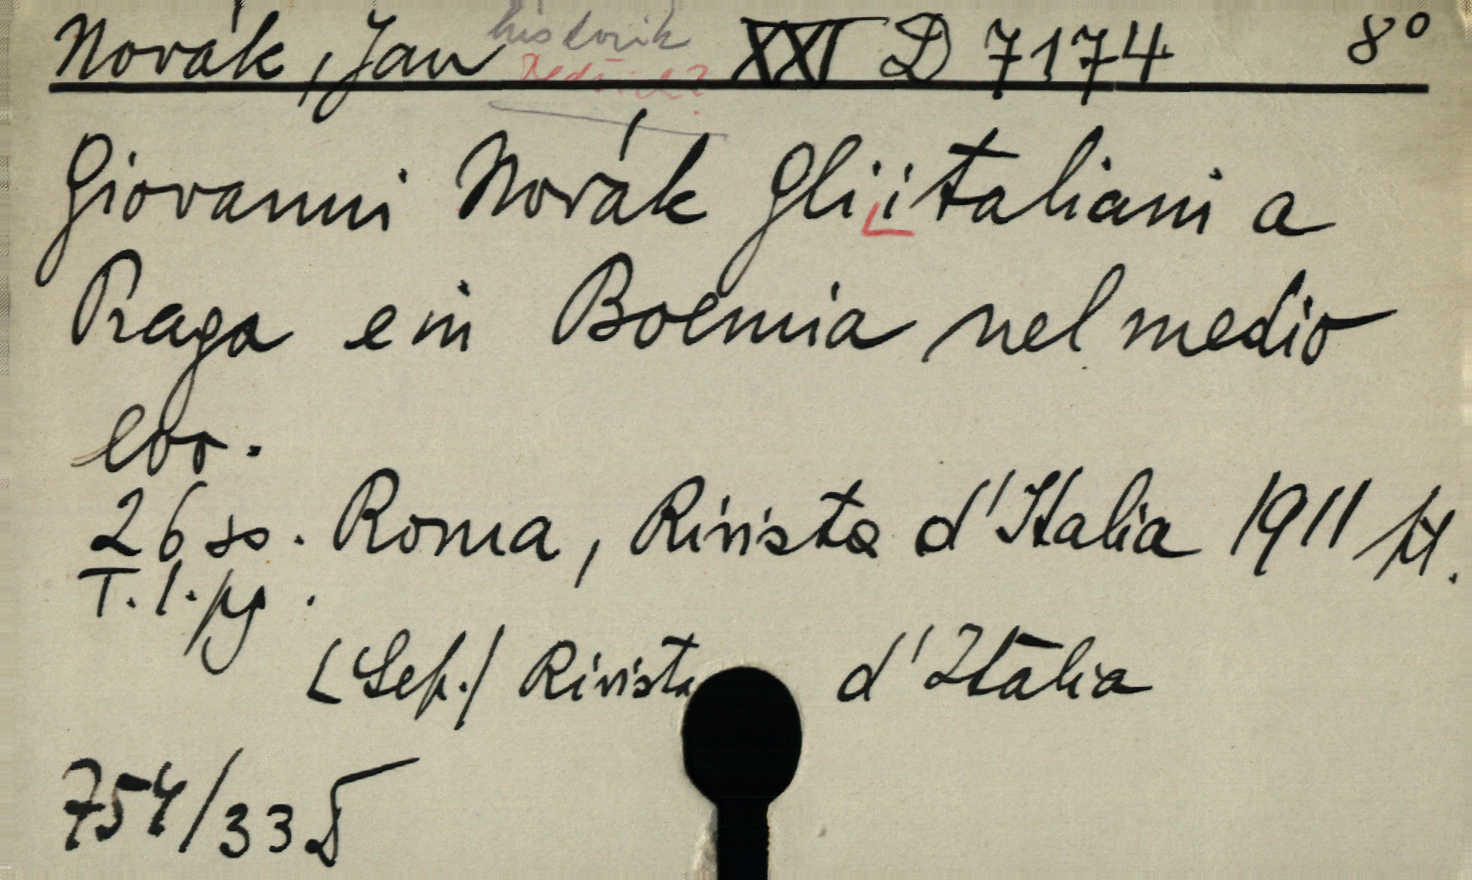 Novák, Jan historik XXI D 7174 8°
Giovanni Novák Gli italiani a
Praga e in Boemia nel medio
evo.
26 ss. Roma, Rivista d'Italia 1911
T. I. pg.
(Sep./ Rivista d'Italia
754/33